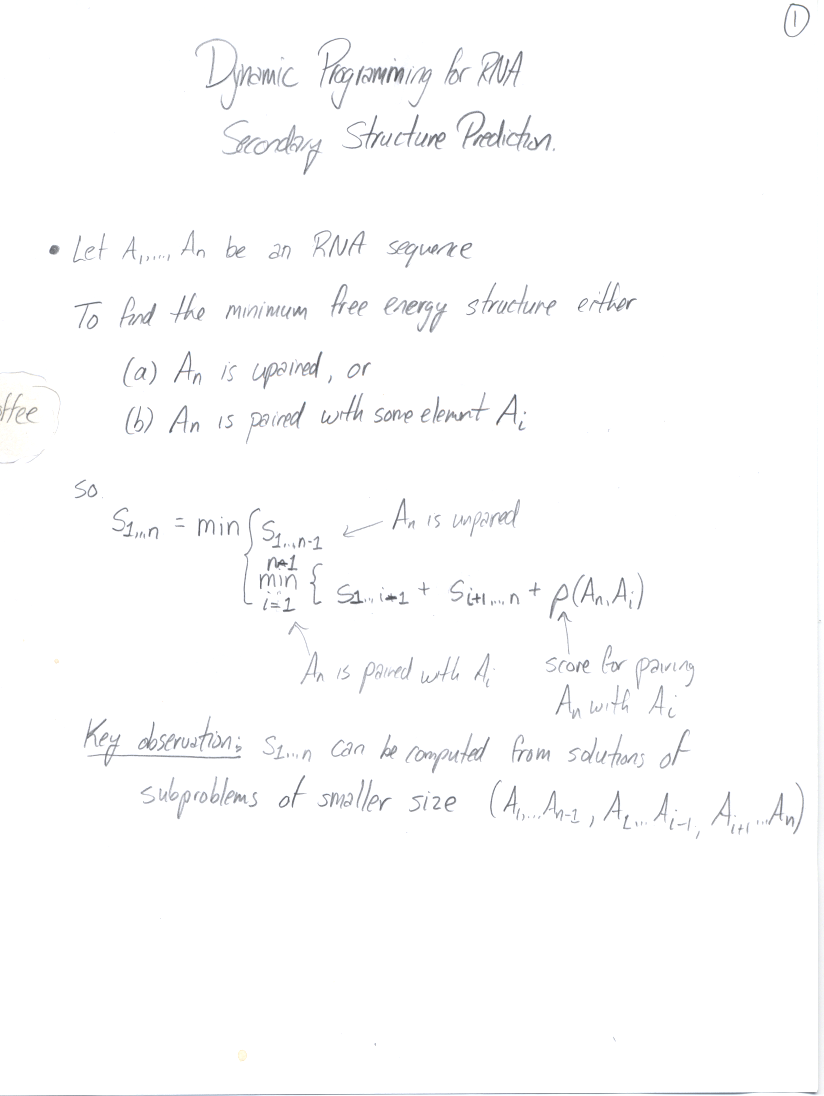 1
Dynamic Programming for RNA
Secondary Structure Prediction.
• Let A1,...., An be an RNA sequence
To find the minimum free energy structure either
(a) An is upaired, or
(b) An is paired with some elemnt Ai
ffee
so
S1...n = min { S1...n-1 ← An is unpaired
n-1
min { S1...i-1 + Si+1...n + ρ(An, Ai)
i=1
An is paired with Ai
score for pairing
An with Ai
Key observation: S1...n can be computed from solutions of
subproblems of smaller size (A1...An-1, A1...Ai-1, Ai+1...An)